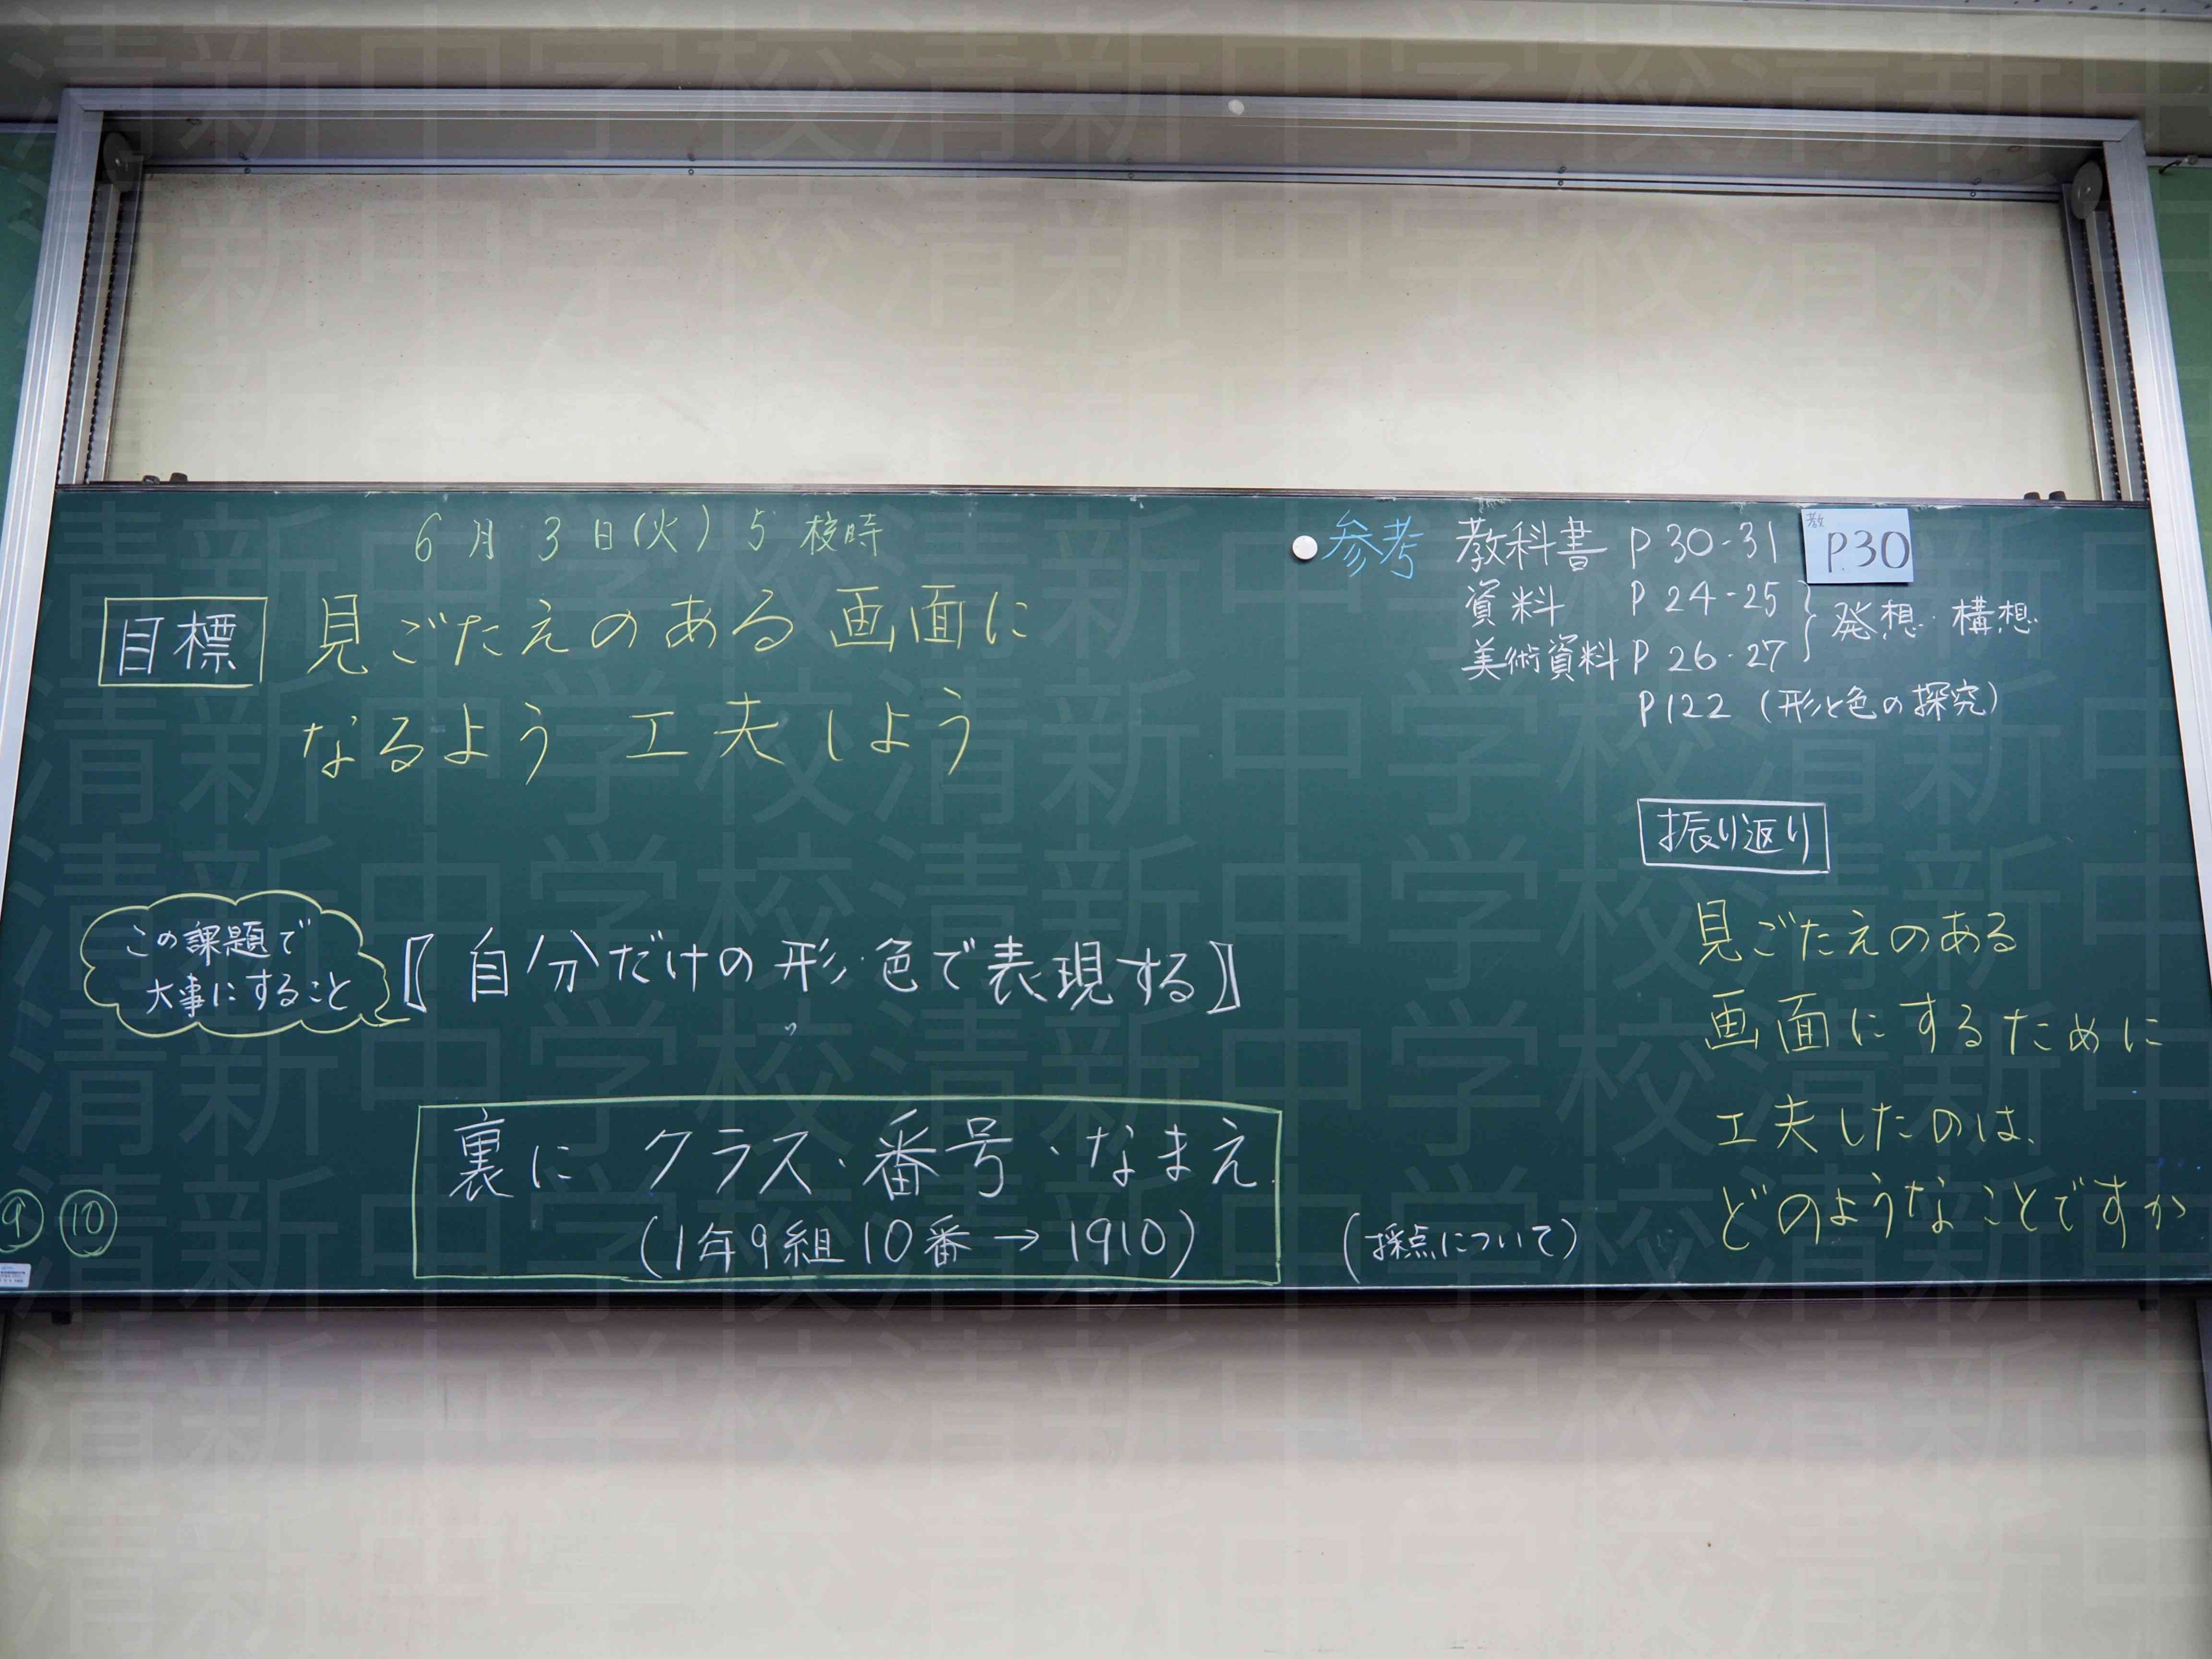 6月3日(火) 5校時
目標 見ごたえのある画面に
なるよう工夫しよう
この課題で
大事にすること
〖自分だけの形・色で表現する〗
裏に クラス・番号・なまえ
(1年9組10番→1910)
⑨ ⑩
参考 教科書 P30-31
教 P.30
資料 P24-25
美術資料 P26-27
発想・構想
P122 (形と色の探究)
振り返り
見ごたえのある
画面にするために
工夫したのは、
どのようなことですか
(採点について)
清新中学校